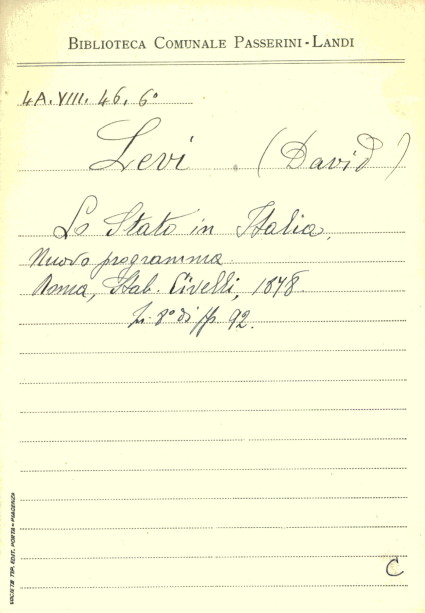 BIBLIOTECA COMUNALE PASSERINI-LANDI
4A.VIII. 46. 6°
Levi . (David)
Lo Stato in Italia.
Nuovo programma
Roma, Stab. Civelli, 1878.
in 8° di pp. 92.
C
SOCIETÀ TIP. EDIT. PORTA - PIACENZA